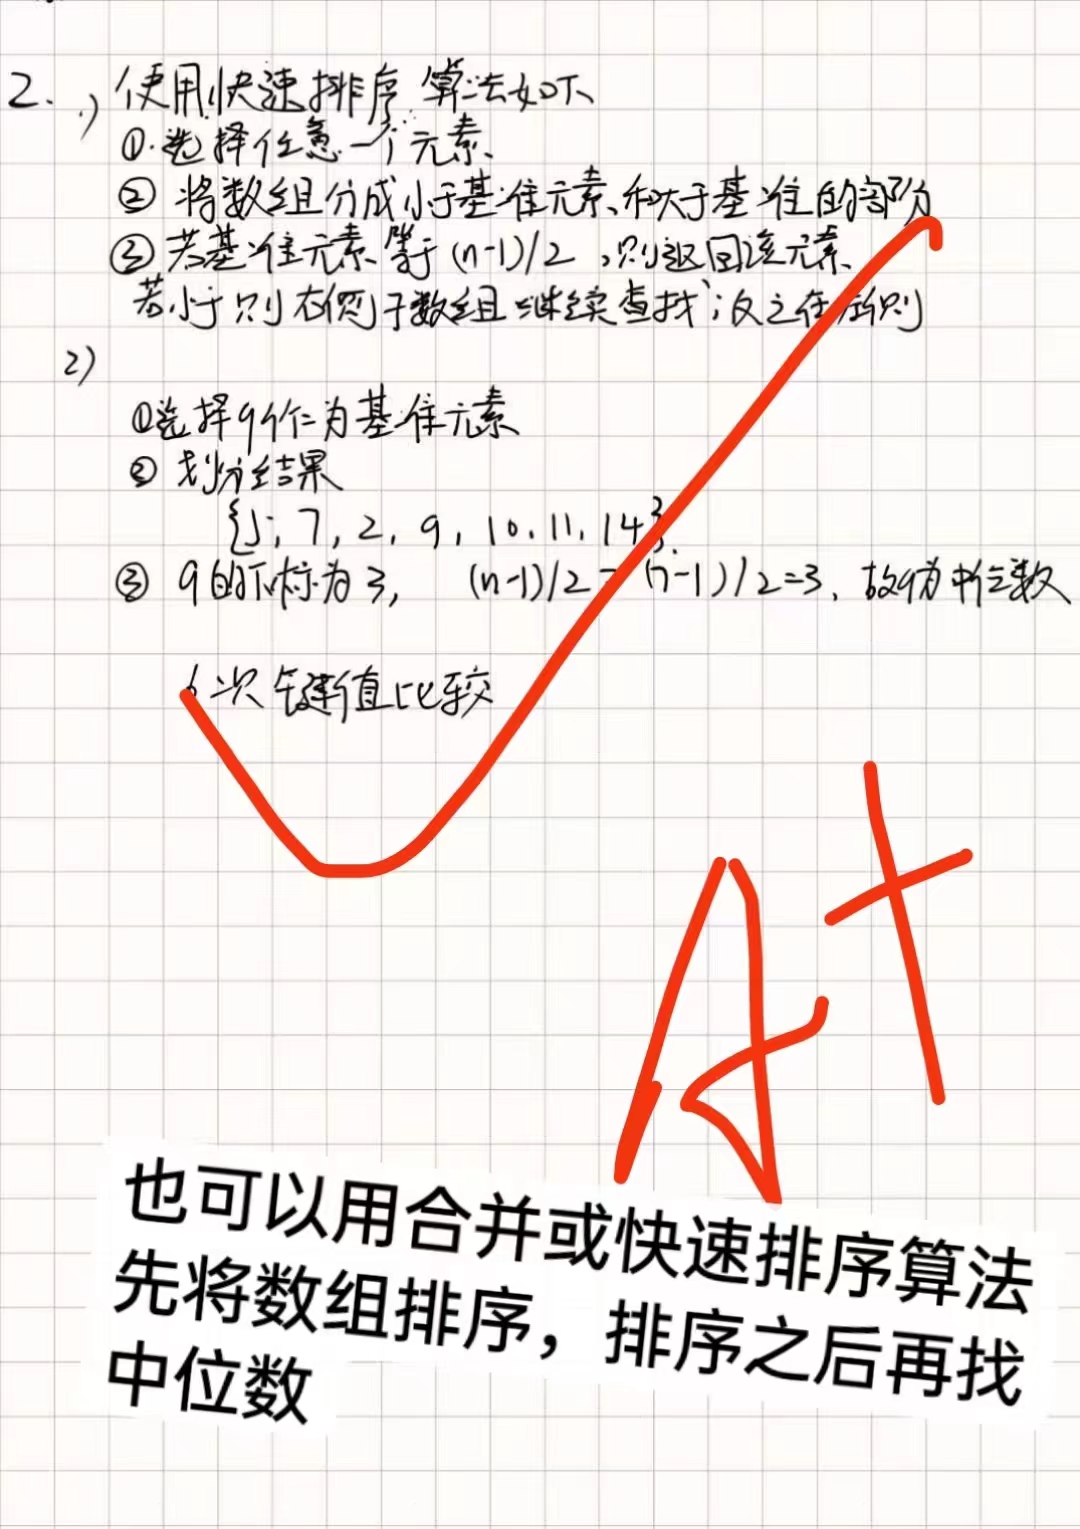 2. 1) 使用快速排序算法如下
①.选择任意一个元素
② 将数组分成小于基准元素和大于基准的部分
③ 若基准元素等于(n-1)/2,则返回该元素
若小于则右侧子数组继续查找;反之在左侧
2)
①选择9作为基准元素
② 划分结果
{5, 7, 2, 9, 10, 11, 14}.
③ 9的下标为3, (n-1)/2=(7-1)/2=3, 故9为中位数
6次键值比较
A+
也可以用合并或快速排序算法
先将数组排序,排序之后再找
中位数